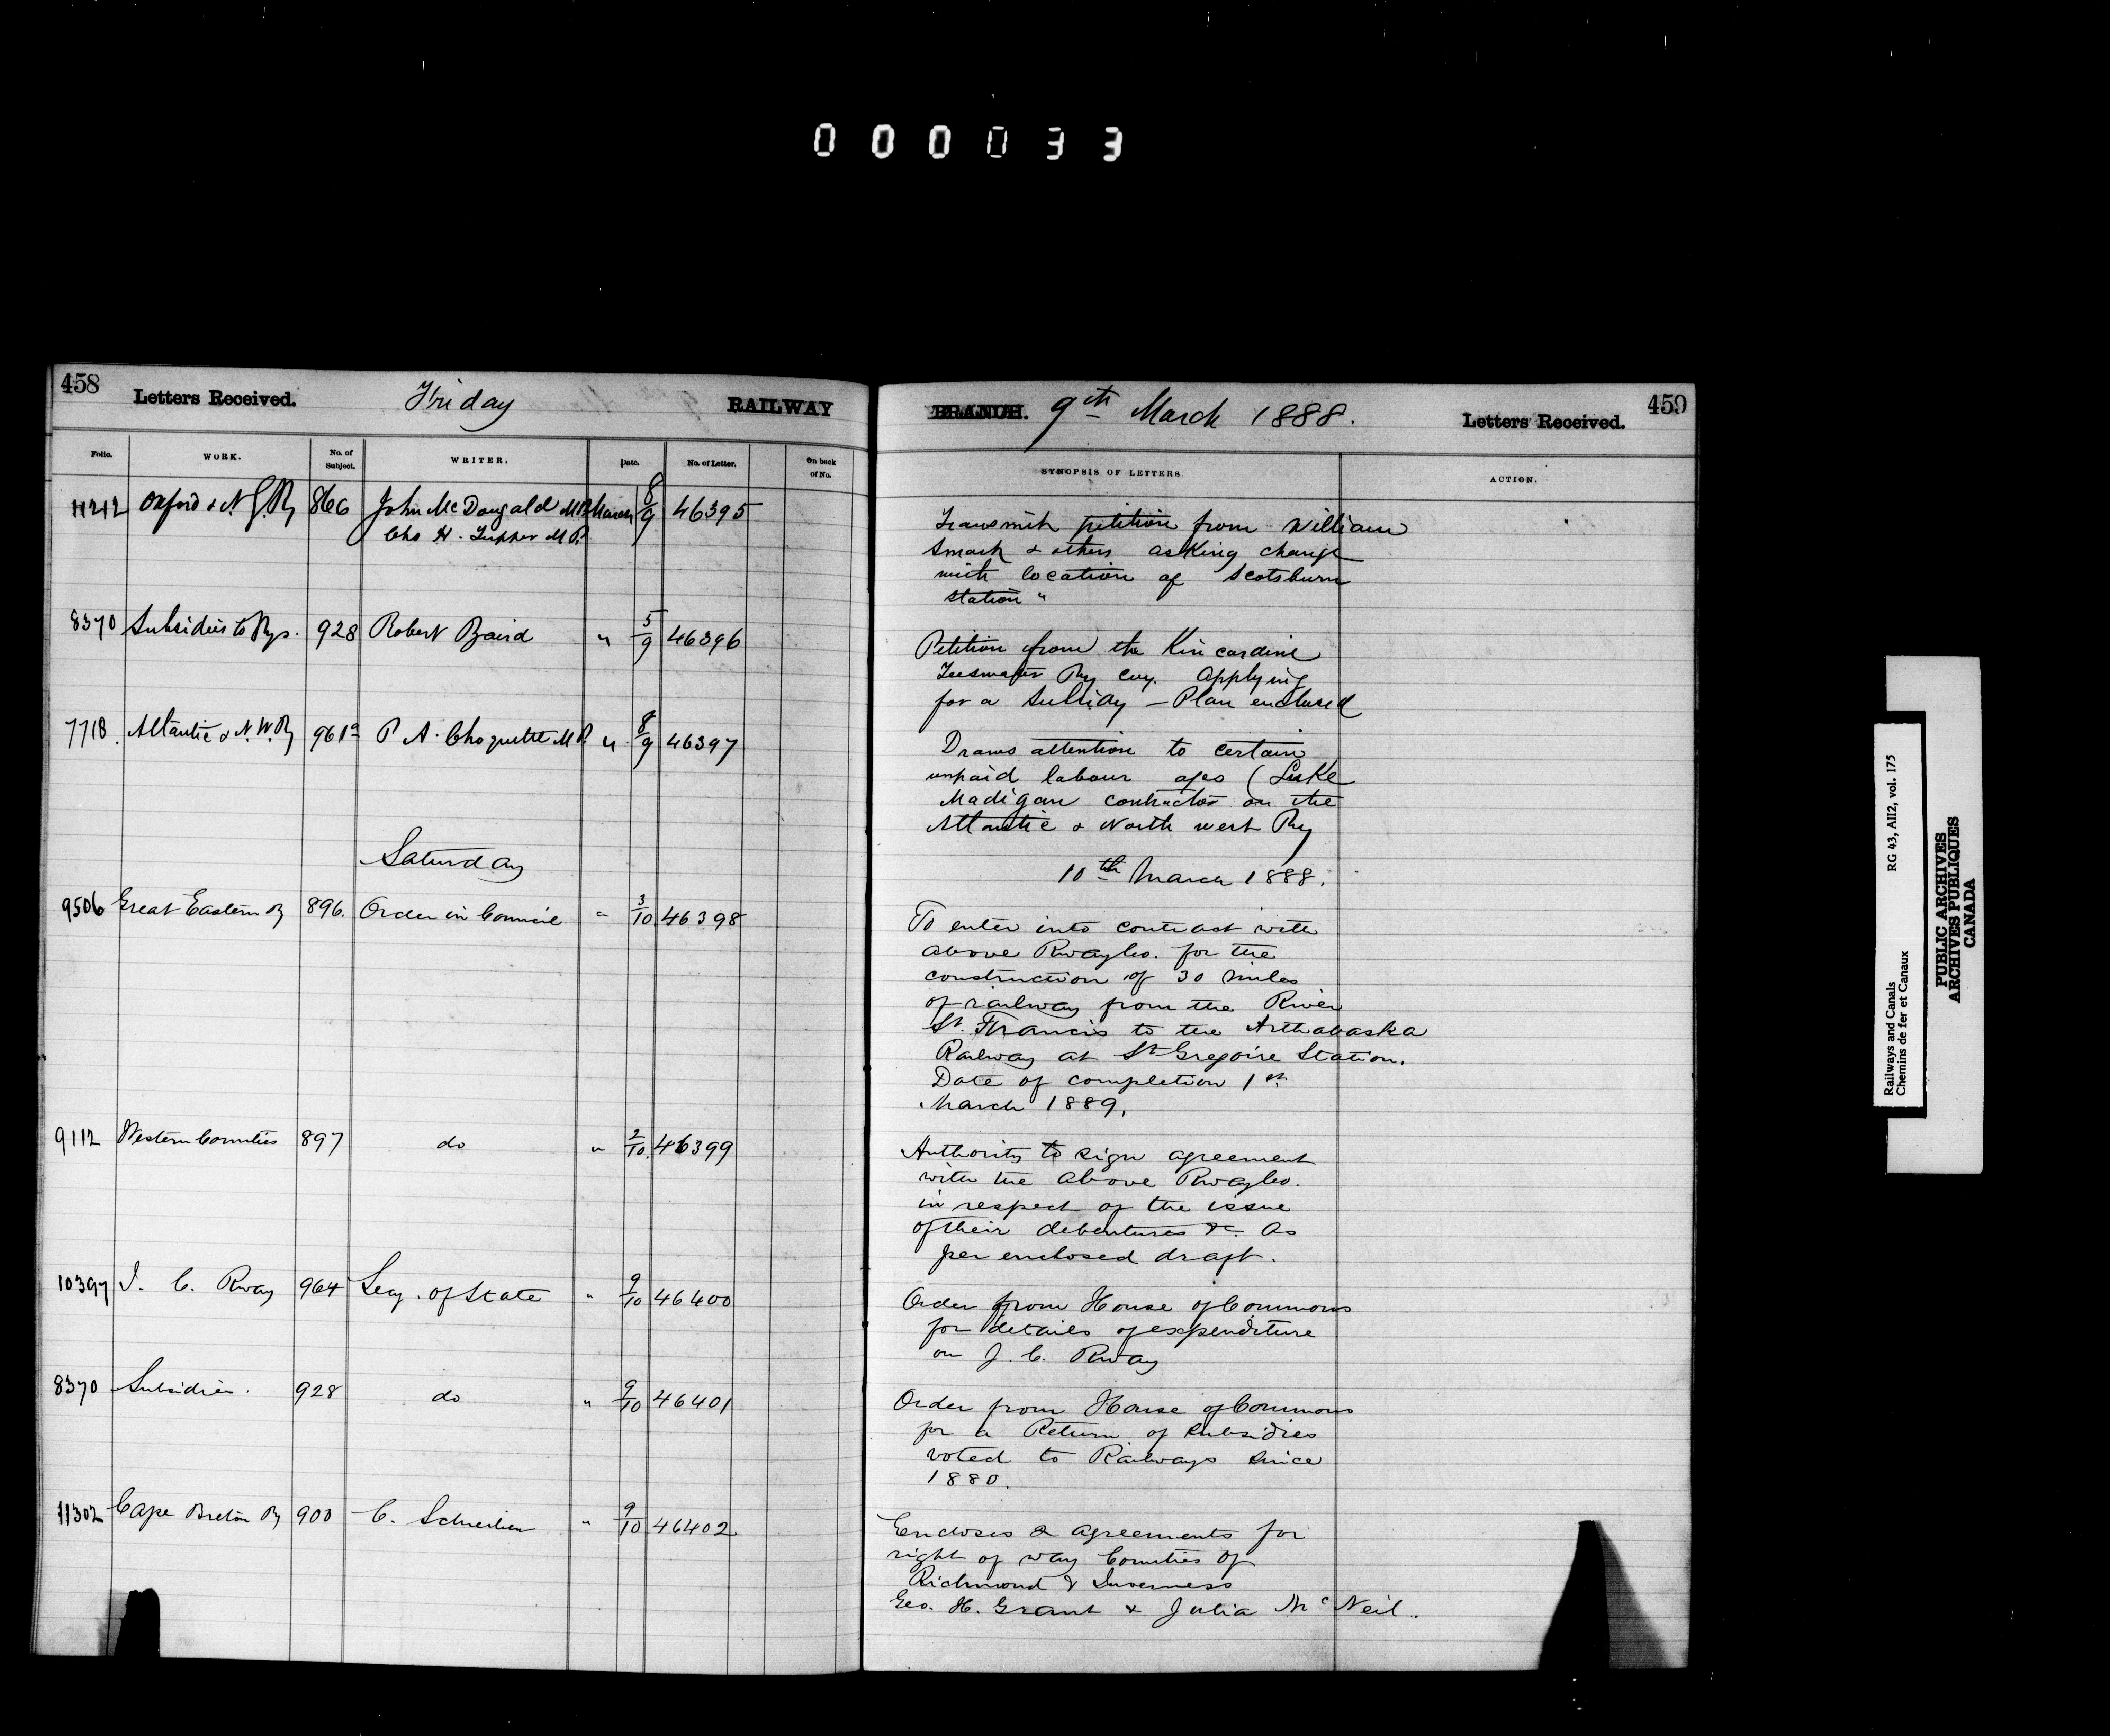 000033
458
Letters Received.
Friday
RAILWAY
BRANCH.
9th March 1888.
Letters Received.
459
Folio.
WORK.
No. of Subject.
WRITER.
Date.
No. of Letter.
On back of No.
SYNOPSIS OF LETTERS
ACTION.
11212 Oxford & N. G. Ry 866 John McDougald MP March 8/9 46395
Chs H. Tupper M.P.
Transmith petition from William
& others asking change
with location of Scotsburn
station "
8370 Subsidies to Rys. 928 Robert Baird " 5/9 46396
Petition from the Kincardine
Teeswater Ry Coy. Applying
for a subsidy - Plan enclosed
7718. Atlantic & N.W.Ry 961a P A. Choquette M P. " 8/9 46397
Draws attention to certain
unpaid labour (Luke
Madigan contractor on the
Atlantic & North west Ry
Saturday
10th March 1888.
9506 Great Eastern Ry 896. Order in Council " 3/10 46398
To enter into contract with
above Rway Co. for the
construction of 30 miles
of railway from the River
St. Francis to the Arthabaska
Railway at St Gregoire Station.
Date of completion 1st
March 1889.
9112 Western Counties 897 do " 2/10 46399
Authority to sign agreement
with the above Rway Co.
in respect of the issue
of their debentures &c. as
per enclosed draft.
10397 I. C. Rway 964 Secy. of State " 9/10 46400
Order from House of Commons
for details of expenditure
on I. C. Rway
8370 Subsidies. 928 do " 9/10 46401
Order from House of Commons
for a Return of subsidies
voted to Railways since
1880.
11302 Cape Breton Ry 900 C. Schreiber " 9/10 46402
Encloses 2 agreements for
right of way Counties of
Richmond & Inverness
Geo. H. Grant & Julia McNeil.
Railways and Canals RG 43, AII2, vol. 175
Chemins de fer et Canaux
PUBLIC ARCHIVES
ARCHIVES PUBLIQUES
CANADA